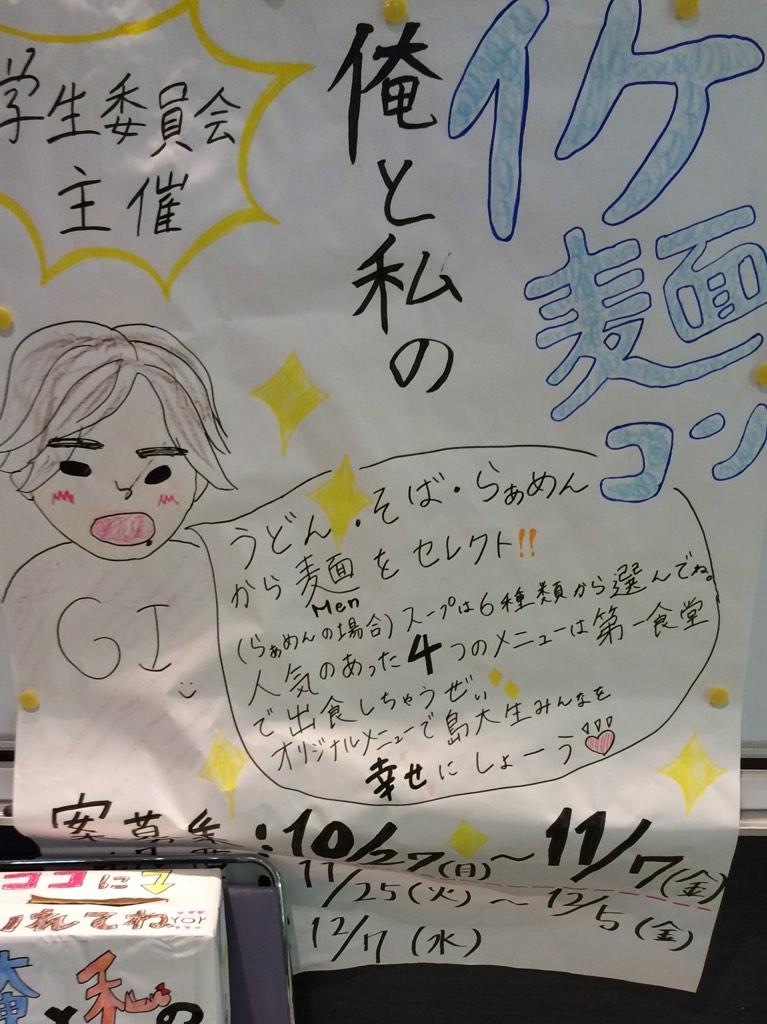 学生委員会
主催
俺と私の
イケ
麺
コン
うどん・そば・らぁめん
から麺をセレクト!!
Men
(らぁめんの場合)スープは6種類から選んでね。
人気のあった4つのメニューは第一食堂
で出食しちゃうぜぃ
オリジナルメニューで島大生みんなを
幸せにしよーう
GI
案募集:10/27(月)〜11/7(金)
11/25(火)〜12/5(金)
12/17(水)
ココに
いれてね
俺と私の